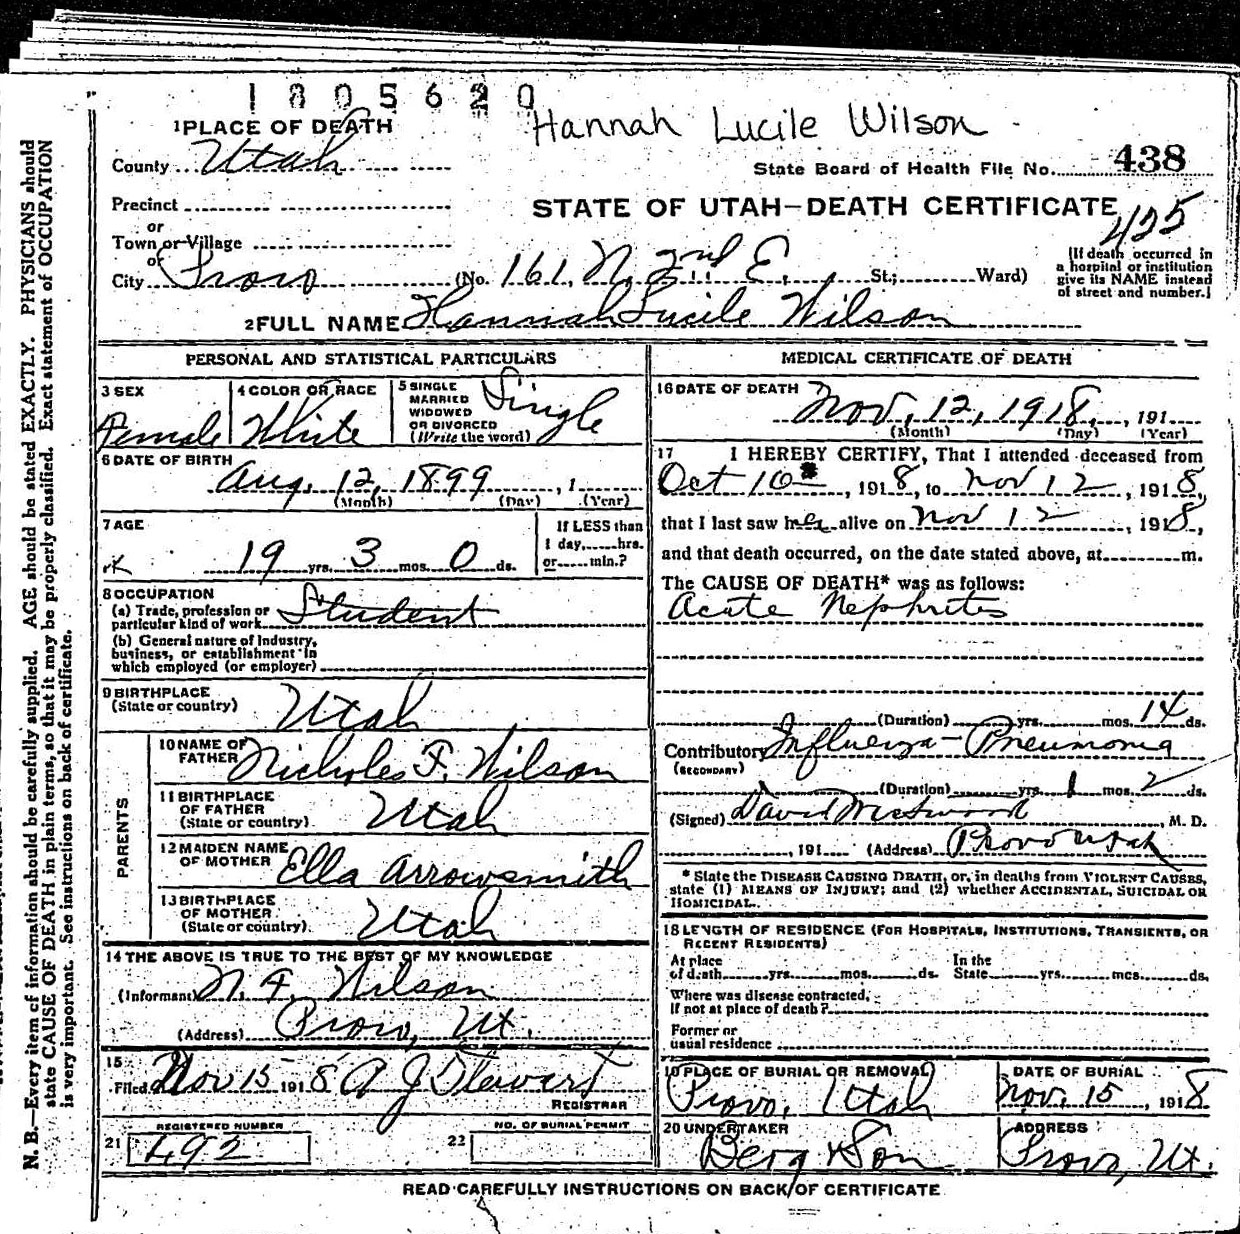 1805620
Hannah Lucile Wilson
1 PLACE OF DEATH
County Utah
State Board of Health File No. 438
Precinct
STATE OF UTAH—DEATH CERTIFICATE
425
or
Town or Village
or
City Provo (No. 161, N. 2nd E. St.; Ward)
[If death occurred in
a hospital or institution
give its NAME instead
of street and number.]
2 FULL NAME Hannah Lucile Wilson
PERSONAL AND STATISTICAL PARTICULARS
3 SEX
Female
4 COLOR OR RACE
White
5 SINGLE
MARRIED
WIDOWED
OR DIVORCED
(Write the word)
Single
6 DATE OF BIRTH
Aug. 12, 1899, 1
(Month) (Day) (Year)
7 AGE
19 yrs. 3 mos. 0 ds.
If LESS than
1 day, hrs.
or min.?
8 OCCUPATION
(a) Trade, profession or
particular kind of work Student
(b) General nature of Industry,
business, or establishment in
which employed (or employer)
9 BIRTHPLACE
(State or country) Utah
PARENTS
10 NAME OF
FATHER Nicholes F. Wilson
11 BIRTHPLACE
OF FATHER
(State or country) Utah
12 MAIDEN NAME
OF MOTHER Ella Arrowsmith
13 BIRTHPLACE
OF MOTHER
(State or country) Utah
14 THE ABOVE IS TRUE TO THE BEST OF MY KNOWLEDGE
(Informant) N. F. Wilson
(Address) Provo, Ut.
15
Filed Nov 15 1918 A J Stewart
REGISTRAR
REGISTERED NUMBER
21 492
NO. OF BURIAL PERMIT
22
MEDICAL CERTIFICATE OF DEATH
16 DATE OF DEATH Nov. 12, 1918, 191
(Month) (Day) (Year)
17 I HEREBY CERTIFY, That I attended deceased from
Oct 10, 1918, to Nov 12, 1918,
that I last saw her alive on Nov 12, 1918,
and that death occurred, on the date stated above, at m.
The CAUSE OF DEATH* was as follows:
Acute Nephrites
(Duration) yrs. mos. 14 ds.
Contributory Influenza-Pneumonia
(SECONDARY)
(Duration) yrs. 1 mos. 2 ds.
(Signed) David, M. D.
, 191 (Address) Provo Utah
* State the DISEASE CAUSING DEATH, or, in deaths from VIOLENT CAUSES,
state (1) MEANS OF INJURY; and (2) whether ACCIDENTAL, SUICIDAL OR
HOMICIDAL.
18 LENGTH OF RESIDENCE (FOR HOSPITALS, INSTITUTIONS, TRANSIENTS, OR
RECENT RESIDENTS)
At place
of death yrs. mos. ds.
In the
State yrs. mcs. ds.
Where was disease contracted,
If not at place of death?
Former or
usual residence
19 PLACE OF BURIAL OR REMOVAL
Provo, Utah
DATE OF BURIAL
Nov. 15, 1918
20 UNDERTAKER
Berg & Son
ADDRESS
Provo, Ut.
READ CAREFULLY INSTRUCTIONS ON BACK OF CERTIFICATE
N. B.—Every item of information should be carefully supplied. AGE should be stated EXACTLY. PHYSICIANS should
state CAUSE OF DEATH in plain terms, so that it may be properly classified. Exact statement of OCCUPATION
is very important. See instructions on back of certificate.